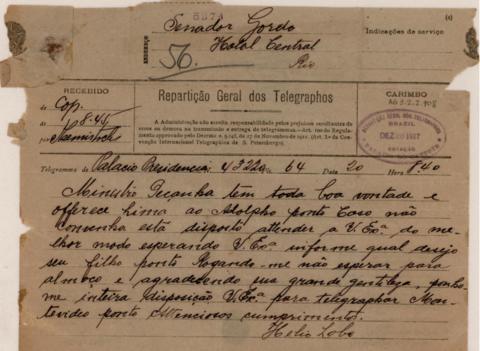 8874
Senador Gordo
Hotel Central
Rio
ENDEREÇO
56.
Indicações de serviço
RECEBIDO
de Cop.
ás 18.45
por
Repartição Geral dos Telegraphos
A Administração não acceita responsabilidade pelos prejuizos resultantes de
erros ou demora na transmissão e entrega de telegrammas.—Art. 100 do Regula-
mento approvado pelo Decreto n. 9.148, de 27 de Novembro de 1911. (Art. 3 da Con-
venção Internacional Telegraphica de S. Petersburgo).
CARIMBO
BRAZIL
Telegramma de Palacio Presidencia N. 4322 Pls. 64 Data 20 Hora 8.40
Ministro Peçanha tem toda boa vontade e
offerece Lima ao Adolpho ponto Caso não
convenha está disposto attender a V. Exª. do me-
lhor modo esperando V. Exª. informe qual desejo
seu filho ponto Rogando-me não esperar para
almoço e agradecendo sua grande gentileza, ponho-
me inteira disposição V. Exª. para telegraphar Mon-
tevideo ponto Attenciosos cumprimentos.
Helio Lobo